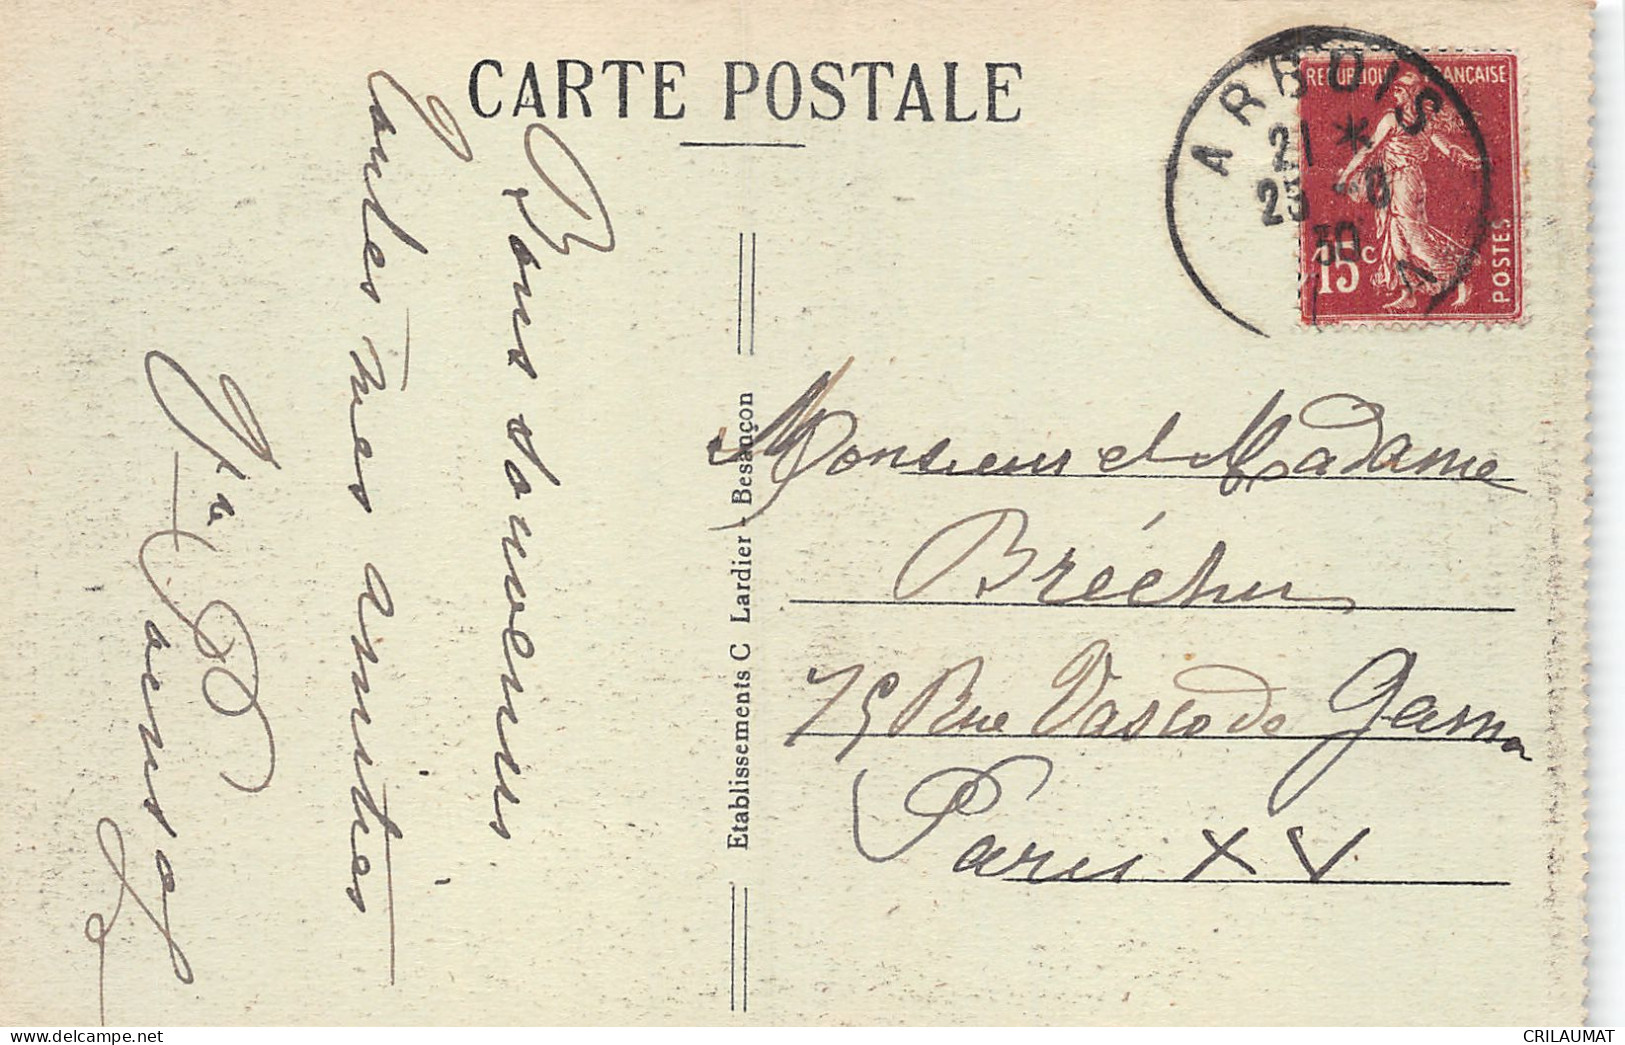 CARTE POSTALE
REPUBLIQUE FRANÇAISE
15c
POSTES
ARBOIS
21 *
25 -8
30
Bons souvenirs
Toutes mes amitiés
Etablissements C Lardier - Besançon
Monsieur et Madame
Brécher
75 Rue Vasco de Gama
Paris XV
CRILAUMAT